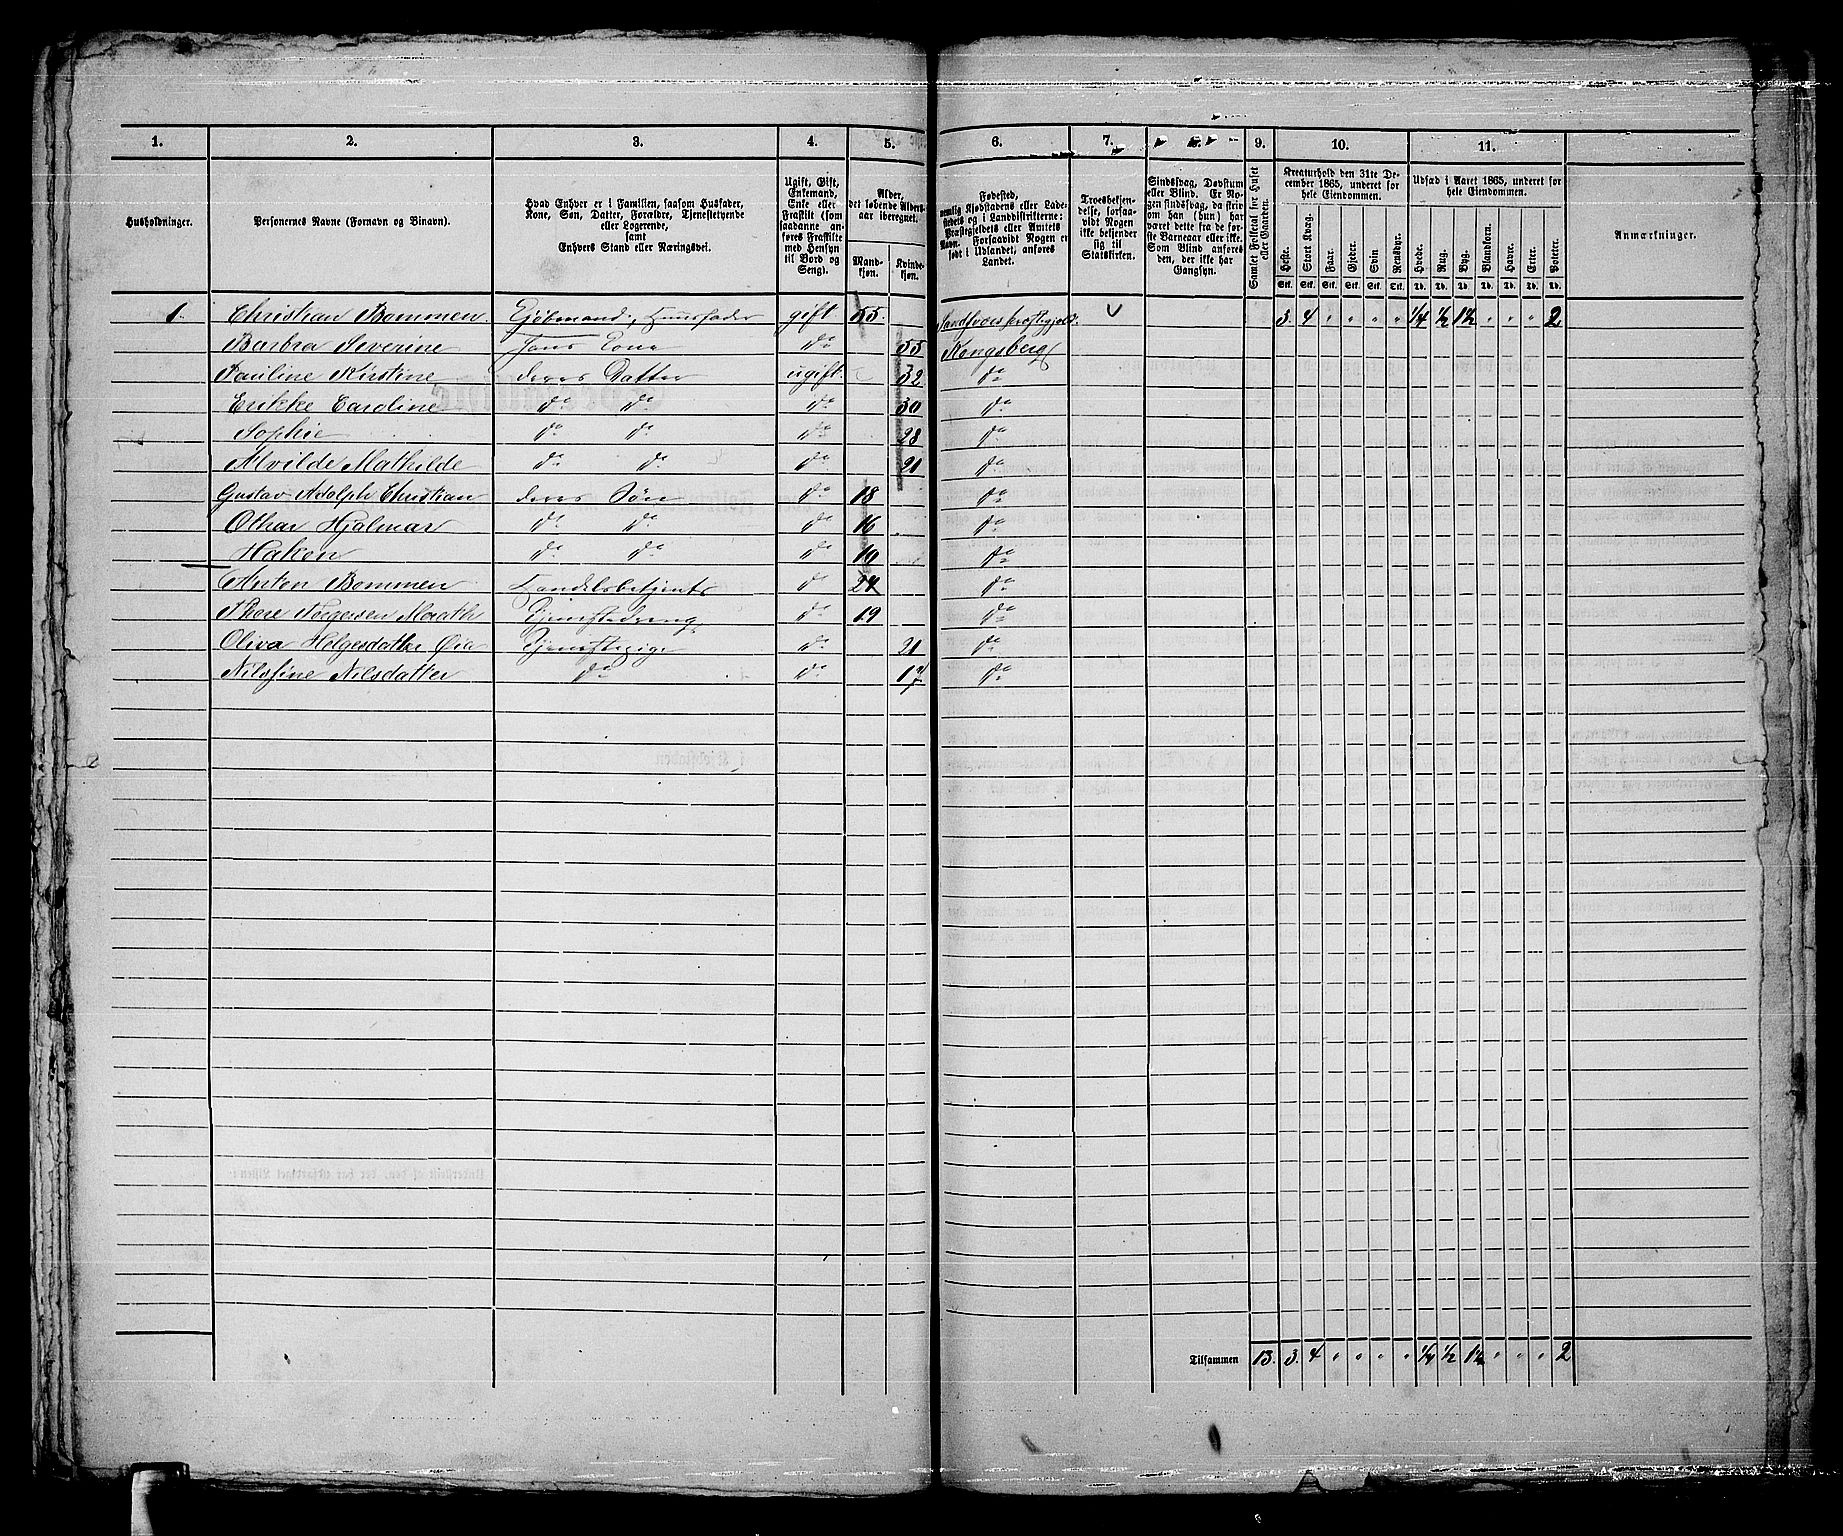 1. 2. 3. 4. 5. 6. 7. 8. 9. 10. 11.
Husholdninger.
Personernes Navne (Fornavn og Binavn).
Hvad Enhver er i Familien, saasom Husfader,
Kone, Søn, Datter, Forældre, Tjenestetyende
eller Logerende,
samt
Enhvers Stand eller Næringsvei.
Ugift, Gift,
Enkemand,
Enke eller
Fraskilt (som
saadanne an-
føres Fraskilte
med Hensyn
til Bord og
Seng).
Alder,
det løbende Alders-
aar iberegnet.
Mand-
kjøn.
Kvinde-
kjøn.
Fødested,
nemlig Kjøbstadens eller Lade-
stedets og i Landdistrikterne:
Præstegjeldets eller Amtets
Navn. Forsaavidt Nogen er
født i Udlandet, anføres
Landet.
Troesbekjen-
delse, forsaa-
vidt Nogen
ikke bekjender
sig til
Statskirken.
Sindssvag, Døvstum
eller Blind. Er No-
gen sindssvag, da skriv
om han (hun) har
været dette fra de før-
ste Barneaar eller ikke.
Som Blind anføres
den, der ikke har
Gangsyn.
Samlet Folketal for Huset
eller Gaarden.
Kreaturhold den 31te De-
cember 1865, underet for
hele Eiendommen.
Heste. Stort Kvæg. Faar. Gjeder. Svin Rensdyr.
Stk. Stk. Stk. Stk. Stk. Stk.
Udsæd i Aaret 1865, underet for
hele Eiendommen.
Hvede. Rug. Byg. Blandkorn. Havre. Erter. Poteter.
Td. Td. Td. Td. Td. Td. Td.
Anmærkninger.
1. Christian Bommen. Kjøbmand, Huusfader gift 55. Sandsvær Præstegjeld. 3. 4 " " " " 1/4 1/2 1 1/2 " " " 2
Barbra Severine Hans Kone do 55 Kongsberg
Pauline Kirstine deres Datter ugift 32 do
Erikke Caroline do do do 30 do
Sophie do do do 28 do
Alvilde Mathilde do do do 21 do
Gustav Adolph Christian deres Søn do 18 do
Othar Hjalmar do do do 16 do
Haken do do do 10 do
Anton Bommen Handelsbetjent do 24 do
Thore Tor­gersen Tjenestedreng do 19 do
Oliva Helgesdatter Tjenestepige do 21 do
Nilsine Nilsdatter do do 17 do
Tilsammen 13. 3. 4 " " " " 1/4 1/2 1 1/2 " " " 2